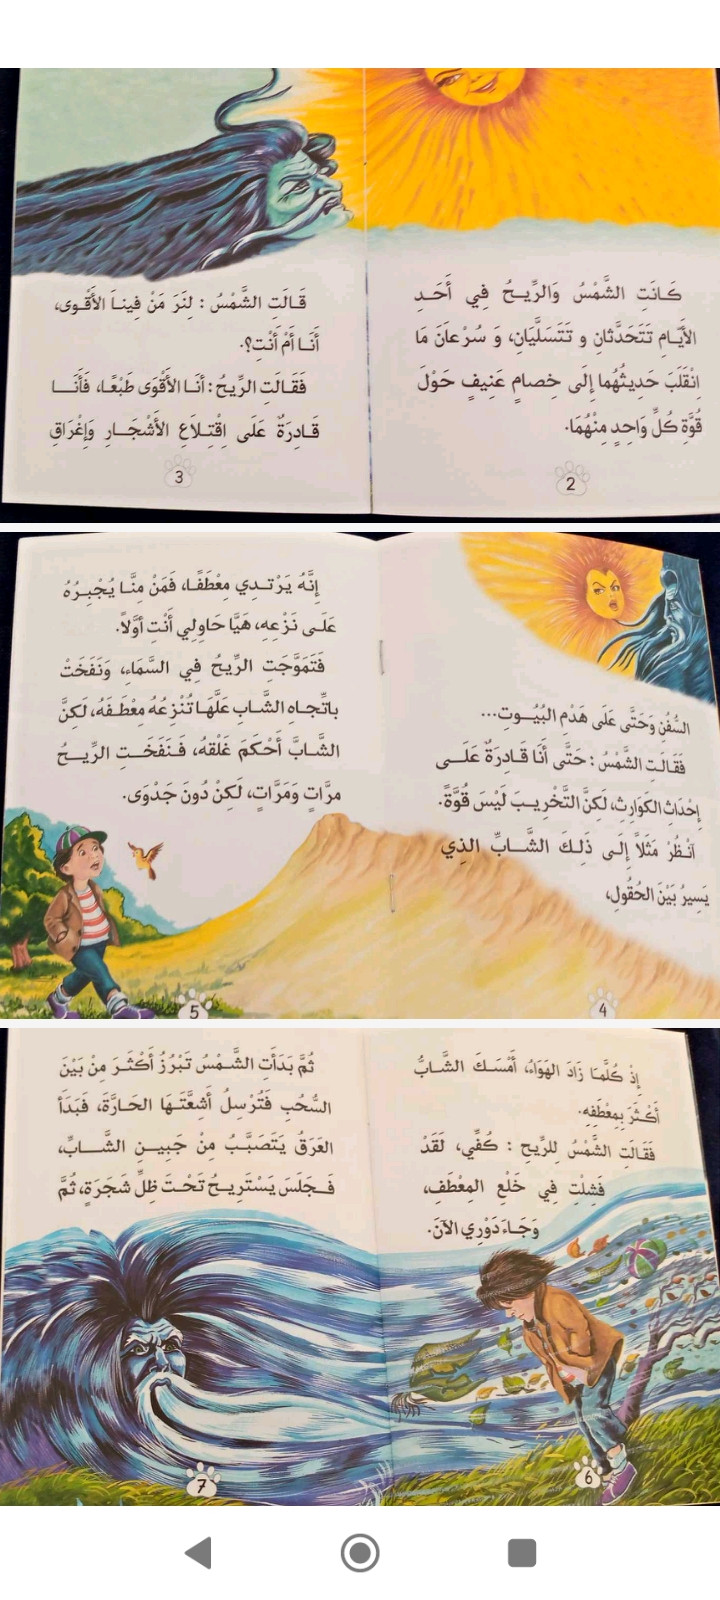 كَانَتِ الشَّمْسُ وَالرِّيحُ فِي أَحَدِ
الأَيَّامِ تَتَحَدَّثَانِ و تَتَسَلَّيَانِ، وَ سُرْعَانَ مَا
انْقَلَبَ حَدِيثُهُما إِلَى خِصامٍ عَنِيفٍ حَوْلَ
قُوَّةِ كُلِّ وَاحِدٍ مِنْهُمَا.
2
قَالَتِ الشَّمْسُ : لِنَرَ مَنْ فِينَا الأَقْوى،
أَنَا أَمْ أَنْتِ؟.
فَقَالَتِ الرِّيحُ : أَنَا الأَقْوَى طَبْعًا، فَأَنَا
قَادِرَةٌ عَلَى اِقْتِلَاعِ الأَشْجَارِ وَإِغْرَاقِ
3
السُّفُنِ وَحَتَّى عَلَى هَدْمِ البُيُوتِ...
فَقَالَتِ الشَّمْسُ : حَتَّى أَنَا قَادِرَةٌ عَلَى
إِحْدَاثِ الكَوَارِثِ، لَكِنَّ التَّخْرِيبَ لَيْسَ قُوَّةً.
اُنْظُرْ مَثَلاً إِلَى ذَلِكَ الشَّابِّ الذِي
يَسِيرُ بَيْنَ الحُقُولِ،
4
إِنَّهُ يَرْتَدِي مِعْطَفًا، فَمَنْ مِنَّا يُجْبِرُهُ
عَلَى نَزْعِهِ، هَيَّا حَاوِلِي أَنْتِ أَوَّلاً.
فَتَمَوَّجَتِ الرِّيحُ فِي السَّمَاءِ، وَنَفَخَتْ
باتِّجاهِ الشَّابِ عَلَّهَا تُنْزِعُهُ مِعْطَفَهُ، لَكِنَّ
الشَّابَّ أَحْكَمَ غَلْقَهُ، فَنَفَخَتِ الرِّيحُ
مرَّاتٍ وَمَرَّاتٍ، لَكِنْ دُونَ جَدْوَى.
5
إِذْ كُلَّمَا زَادَ الهَوَاءُ، أَمْسَكَ الشَّابُّ
أَكْثَرَ بِمِعْطَفِهِ.
فَقَالَتِ الشَّمْسُ لِلرِّيحِ : كُفِّي، لَقَدْ
فَشِلْتِ فِي خَلْعِ المِعْطَفِ،
وَجَاءَ دَوْرِي الآنَ.
6
ثُمَّ بَدَأَتِ الشَّمْسُ تَبْرُزُ أَكْثَرَ مِنْ بَيْنَ
السُّحُبِ فَتُرْسِلُ أَشِعَّتَهَا الحَارَّةَ، فَبَدَأَ
العَرَقُ يَتَصَبَّبُ مِنَ جَبِينِ الشَّابِّ،
فَجَلَسَ يَسْتَرِيحُ تَحْتَ ظِلِّ شَجَرَةٍ، ثُمَّ
7